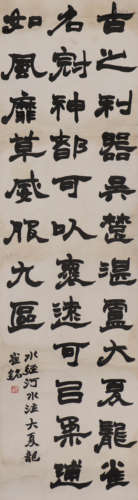 古之利器吴楚湛盧大夏龍雀
名冠神都可以懷遠可以柔逋
如風靡草威服九區
水經河水注大夏龍
雀銘